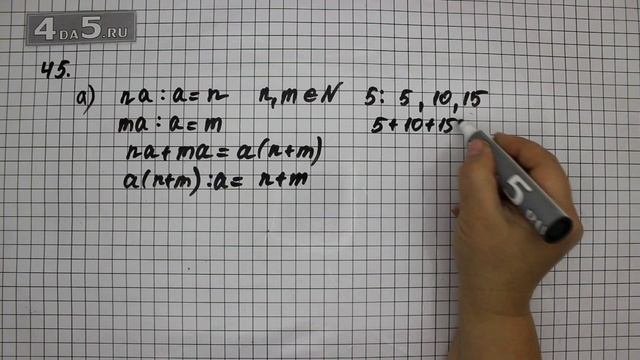 4ДА5.RU
45.
а) na : a = n n, m ∈ N 5: 5, 10, 15
ma : a = m 5 + 10 + 15
na + ma = a(n+m)
a(n+m) : a = n+m
5.ru